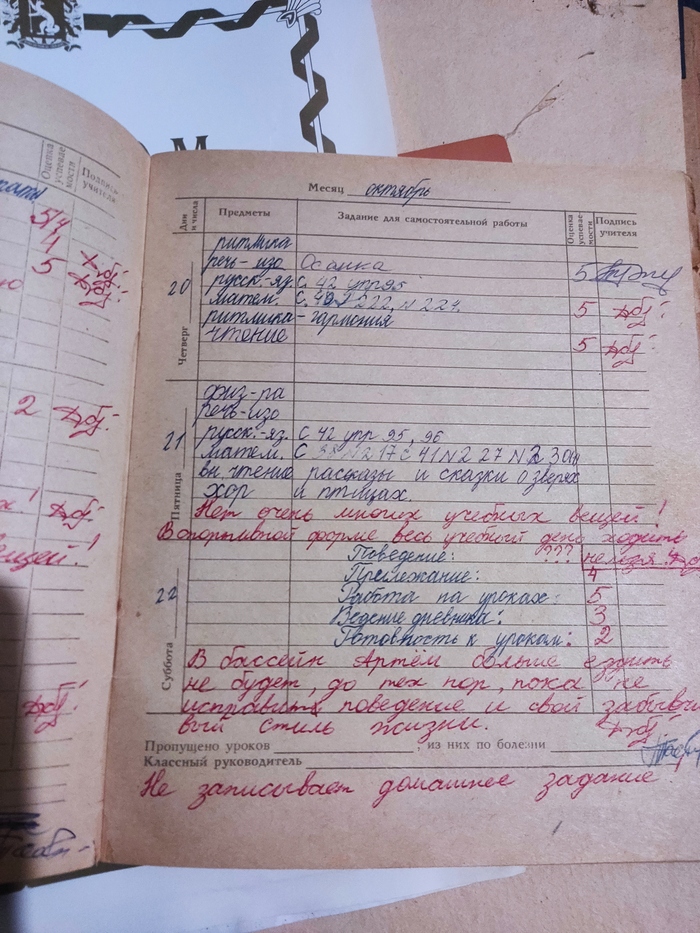 М
Оценка успеваемости
Подпись учителя
5/4
4
5
2
Месяц октябрь
Дни и числа
Предметы
Задание для самостоятельной работы
Оценка успеваемости
Подпись учителя
Четверг 20
ритмика
речь-изо Осанка 5
русск.-яз. с. 42 упр 95
матем. С. № 222, № 224. 5
ритмика-гармония
чтение 5
Пятница 21
физ-ра
речь-изо
русск.-яз. С 42 упр 95, 96
матем. С 41 № 227
вн. чтение рассказы и сказки о зверях
хор и птицах.
Нет очень многих учебных вещей!
В спортивной форме весь учебный день ходить
Суббота 22
Поведение: ??? нельзя.
Прилежание: 4
Работа на уроках: 5
Ведение дневника: 3
Готовность к урокам: 2
В бассейн Артём больше ездить
не будет, до тех пор, пока не
исправит поведение и свой забывчи
вый стиль жизни.
Пропущено уроков , из них по болезни
Классный руководитель
Не записывает домашнее задание